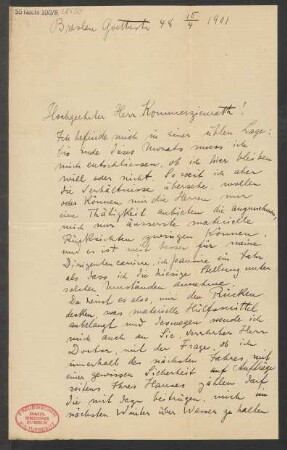 Breslau Goethestr 48 15/4 1901
Hochgeehrter Herr Kommerzienrath!
Ich befinde mich in einer üblen Lage:
bis Ende dieses Monats muss ich
mich entschliessen, ob ich hier bleiben
will oder nicht. Soweit ich aber
die Verhältnisse übersehe, wollen
oder können mir die Herren nur
eine Thätigkeit anbieten die anzunehmen
mich nur äusserste materielle
Rücksichten zwingen können,
und es ist besser für meine
Dirigenten carrière, ich pausire ein Jahr
als dass ich die hiesige Stellung unter
solchen Umständen annehme.
Da heisst es also, mir den Rücken
decken, was materielle Hülfsmittel
anbelangt und deswegen wende ich
mich auch an Sie, verehrter Herr
Doctor, mit der Frage, ob ich
innerhalb des nächsten Jahres, mit
einer gewissen Sicherheit auf Aufträge
seitens Ihres Hauses zählen darf,
die mit dazu beitrügen, mich im
nächsten Winter über Wasser zu halten